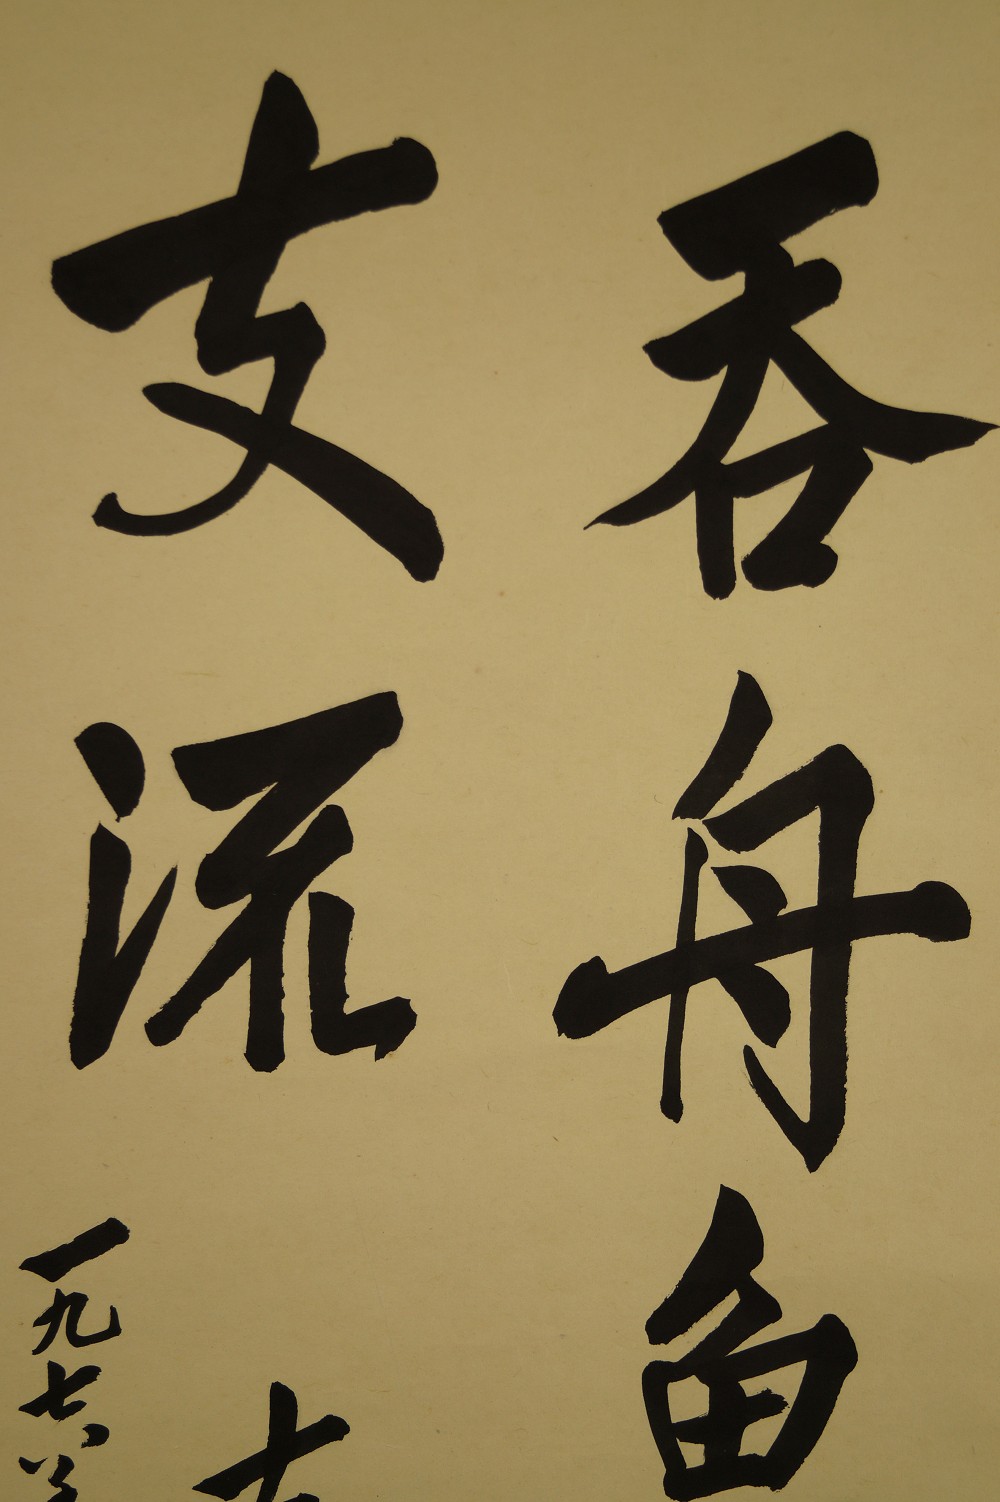 吞舟魚
支流
一九七六